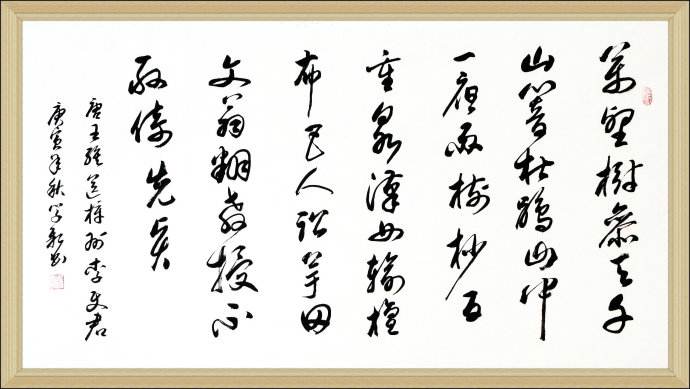 萬壑樹參天千
山響杜鵑山中
一夜雨樹杪百
重泉漢女輸橦
布巴人訟芋田
文翁翻教授不
敢倚先賢
唐王維送梓州李使君
庚寅年秋